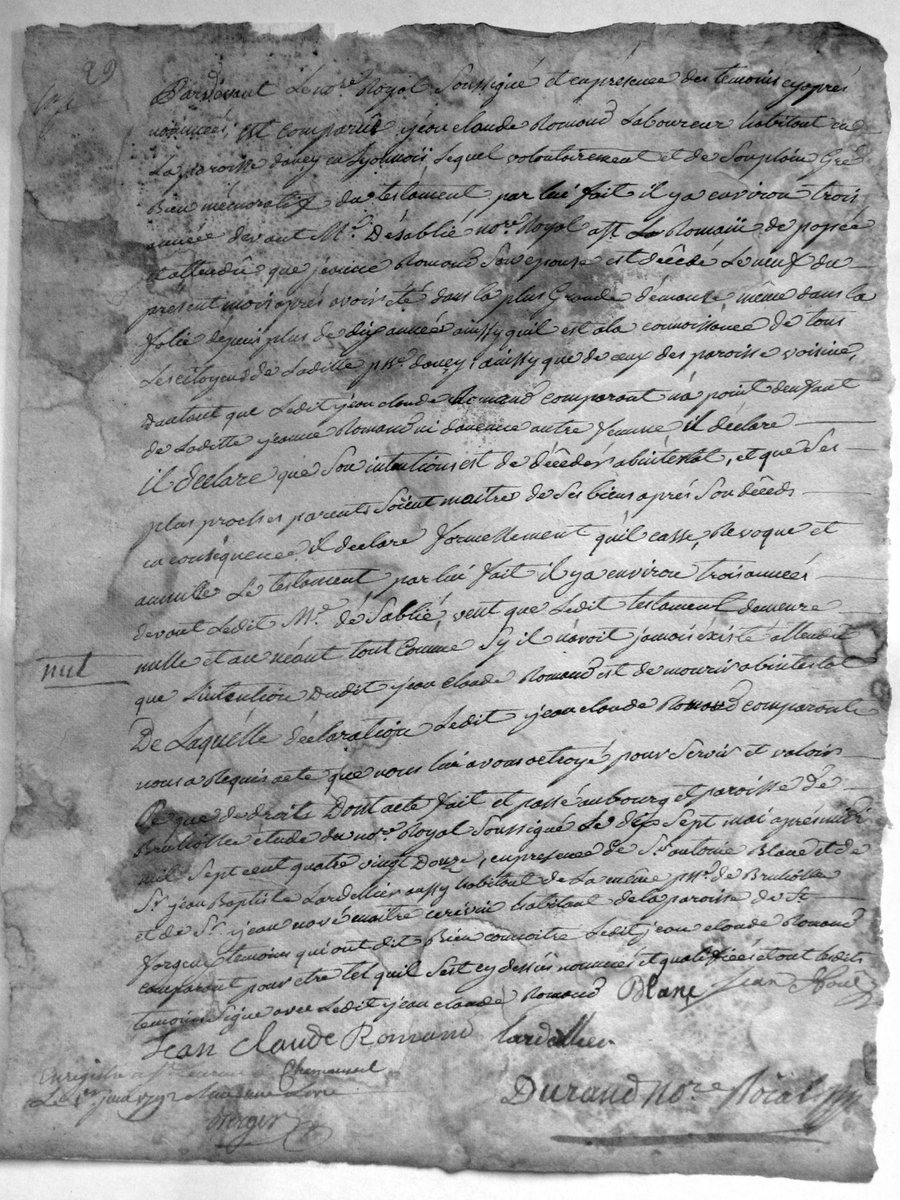 29
Pardevant Le no.re Royal Soussigné et enpresence des temoins cyaprés
nommés, est comparût jean claude Romand Laboureur habitant en
La paroisse davey en Lyonnois Lequel volontairement et de Son plein Gré
Bien mémoratif du testament par lui fait il ya environ trois
année devant M.e Désablié no.re Royal a St. Romain de popée
et attendû que jeanne Romand Son epouse est décédé Le neuf du
présent mois aprés avoir été dans la plus Grande démanse même dans la
folie depuis plus de dix année ainssy quil est ala connoissance de tous
Les citoyens de Laditte p.sse davey, ainssy que de ceux des paroisse voisine,
Dautant que Ledit jean claude Romand comparant na point denfant
de Laditte jeanne Romand ni daucune autre femme il déclare
il déclare que Son intentions est de décéder abintestat, et que Ses
plus proches parents Soient maitre de Ses biens aprés Son décéds
en conséquence il déclare formellement quil casse, Revoque et
annulle Le testament par lui fait il ya environ trois années
devant Ledit M.e déSablié, veut que Ledit testament demeure
nul
nulle et au néant tout Comme Sy il navoit jamais éxisté attendu
que Lintention Dudit jean claude Romand est de mourir abintestat
De Laquélle déclaration Ledit jean claude Romand comparant
nous a Requis acte que nous lui avons octroyé pour Servir et valoir
Ce que de droits Dont acte fait et passé au bourg et paroisse de
Brulliolle étude du no.re Royal Soussigné Le dix Sept mai aprés midi
mil Sept cent quatre vingt Douze, enpresence de S.r antoine Blanc et de
S.r jean Baptiste Lardellier aussy habitant de La même p.sse de Brulliolle
et de S.r jean nové maitre habitant de la paroisse de St
forgeux temoins qui ont dit Bien connoitre Ledit jean claude Romand
comparant pour etre tel quil Sest cy dessus nommés et qualiffiées et ont Lesdits
temoins Signé avec Ledit jean claude Romand Blanc Jean
Jean Claude Romand Lardellier
Enregistré a
Le 1er juin 1792
Durand no.re Roial